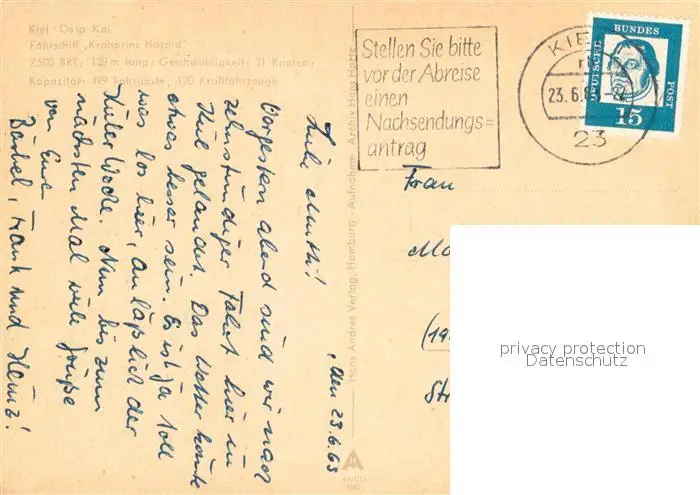 Kiel Oslo Kai
Fährschiff „Kronprins Harald"
7.500 BRT; 139 m lang; Geschwindigkeit: 21 Knoten;
Kapazität: 499 Fahrgäste, 120 Kraftfahrzeuge
, den 23.6.63
Liebe Mutti!
Vorgestern abend sind wir nach
zehnstündiger Fahrt hier in
Kiel gelandet. Das Wetter könnte
etwas besser sein. Es ist ja toll
was los hier, anläßlich der
Kieler Woche. Nun bis zum
nächsten Mal viele Grüße
von Euren
Bärbel, Frank und Heinz!
Hans Andres Verlag, Hamburg - Aufnahme: Archiv Hans Hartz
ANDO
Stellen Sie bitte
vor der Abreise
einen
Nachsendungs=
antrag
KIE
23.6.
23
DEUTSCHE
BUNDES
POST
15
Frau
Mo
(19
Str
privacy protection
Datenschutz